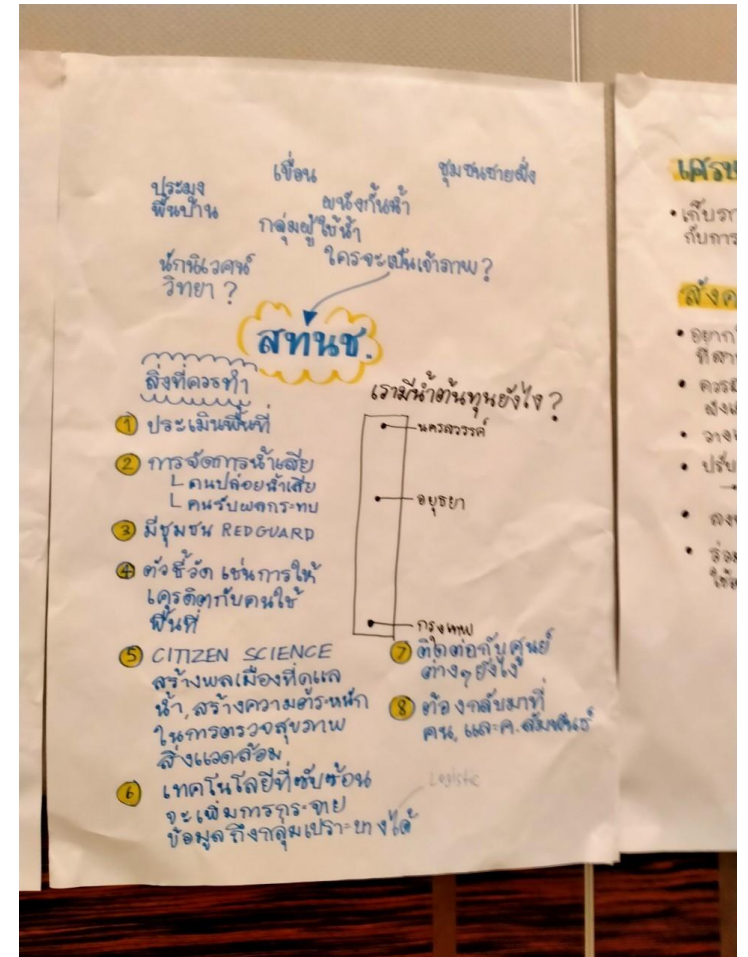 เขื่อน
ชุมชนชายฝั่ง
ประมง
พื้นบ้าน
ผนังกั้นน้ำ
กลุ่มผู้ใช้น้ำ
ใครจะเป็นเจ้าภาพ?
นักนิเวศน์
วิทยา ?
สทนช.
สิ่งที่ควรทำ
① ประเมินพื้นที่
② การจัดการน้ำเสีย
คนปล่อยน้ำเสีย
คนรับผลกระทบ
③ มีชุมชน REDGUARD
④ ตัวชี้วัด เช่นการให้
เครดิตกับคนใช้
พื้นที่
⑤ CITIZEN SCIENCE
สร้างพลเมืองที่ดูแล
น้ำ, สร้างความตระหนัก
ในการตรวจสุขภาพ
สิ่งแวดล้อม
⑥ เทคโนโลยีที่ซับซ้อน
จะเพิ่มการกระจาย
ข้อมูลถึงกลุ่มเปราะบางได้
Logistic
เรามีน้ำต้นทุนยังไง ?
นครสวรรค์
อยุธยา
กรุงเทพ
⑦ ติดต่อกับศูนย์
ต่างๆยังไง
⑧ ต้องกลับมาที่
คน, และค.สัมพันธ์
• อยาก
• ควร
• วาง
• ปรับ